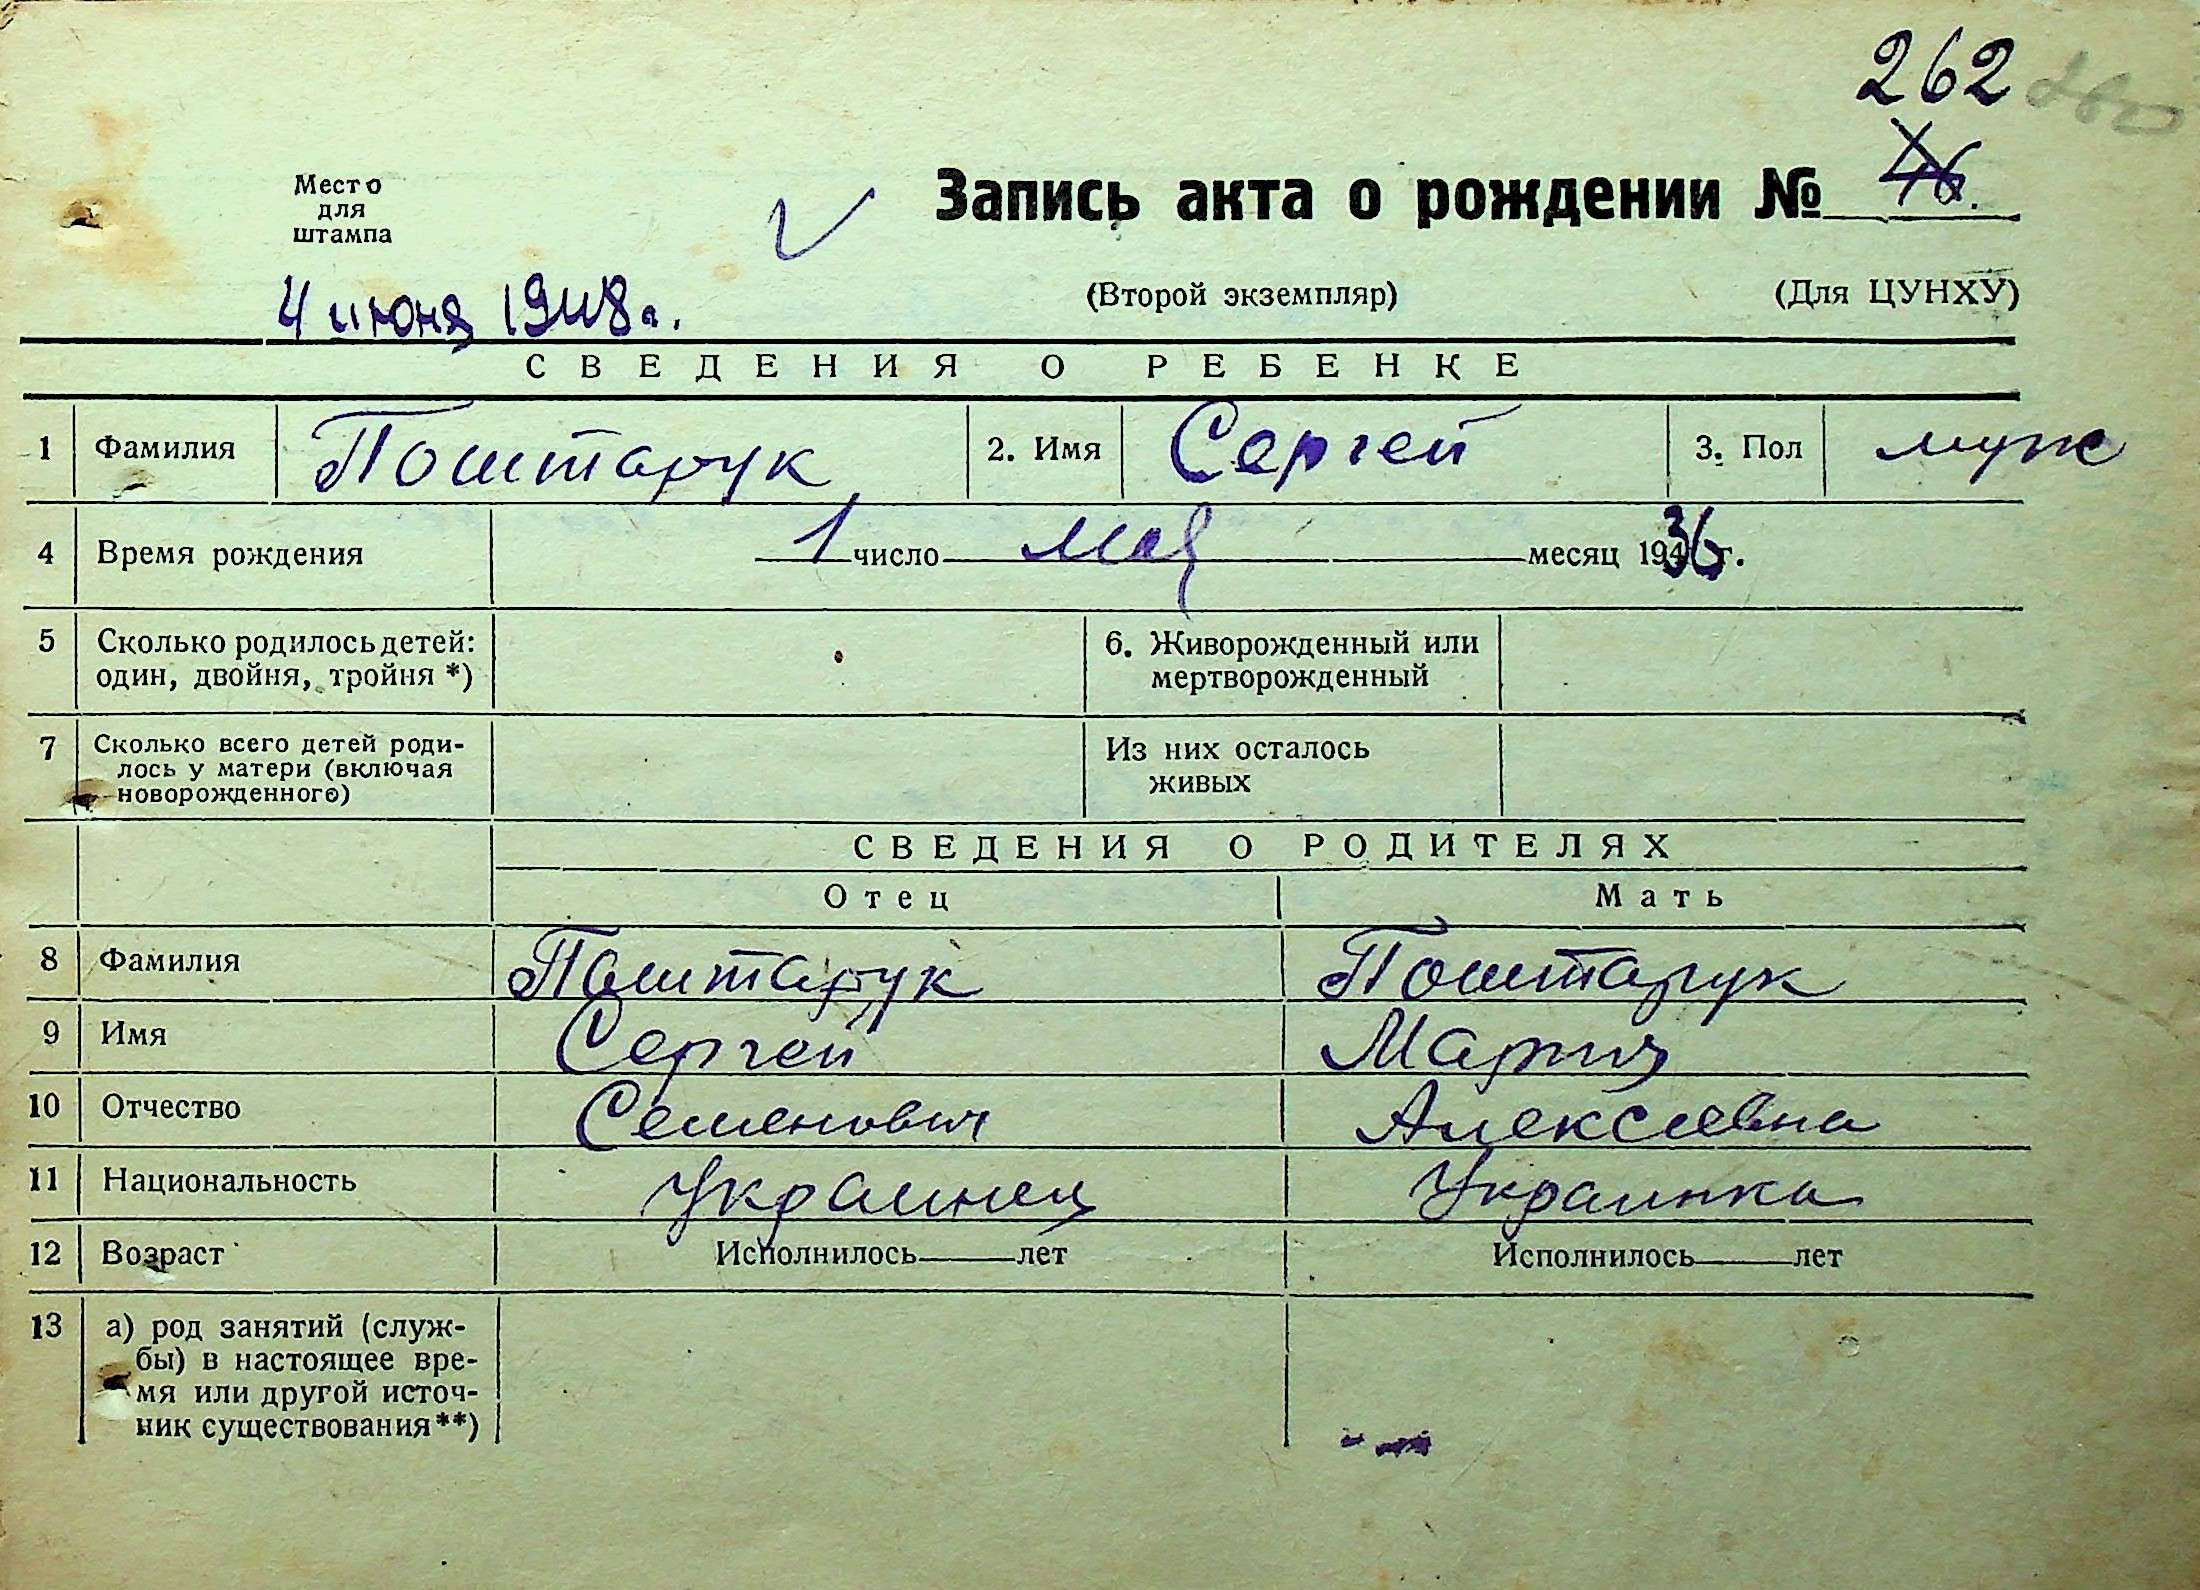 262
Место
для
штампа
Запись акта о рождении № 46.
4 июня 1948 г.
(Второй экземпляр) (Для ЦУНХУ)
СВЕДЕНИЯ О РЕБЕНКЕ
1 Фамилия Поштарук 2. Имя Сергей 3. Пол муж
4 Время рождения 1 число мая месяц 1936 г.
5 Сколько родилось детей: 6. Живорожденный или
один, двойня, тройня *) мертворожденный
7 Сколько всего детей роди- Из них осталось
лось у матери (включая живых
новорожденного)
СВЕДЕНИЯ О РОДИТЕЛЯХ
Отец Мать
8 Фамилия Поштарук Поштарук
9 Имя Сергей Мария
10 Отчество Семенович Алексеевна
11 Национальность Украинец Украинка
12 Возраст Исполнилось лет Исполнилось лет
13 а) род занятий (служ-
бы) в настоящее вре-
мя или другой источ-
ник существования**)